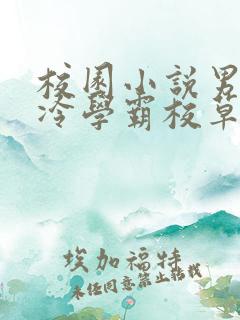 校園小說男
冷學霸校草
埃加福特
未經同意禁止轉載